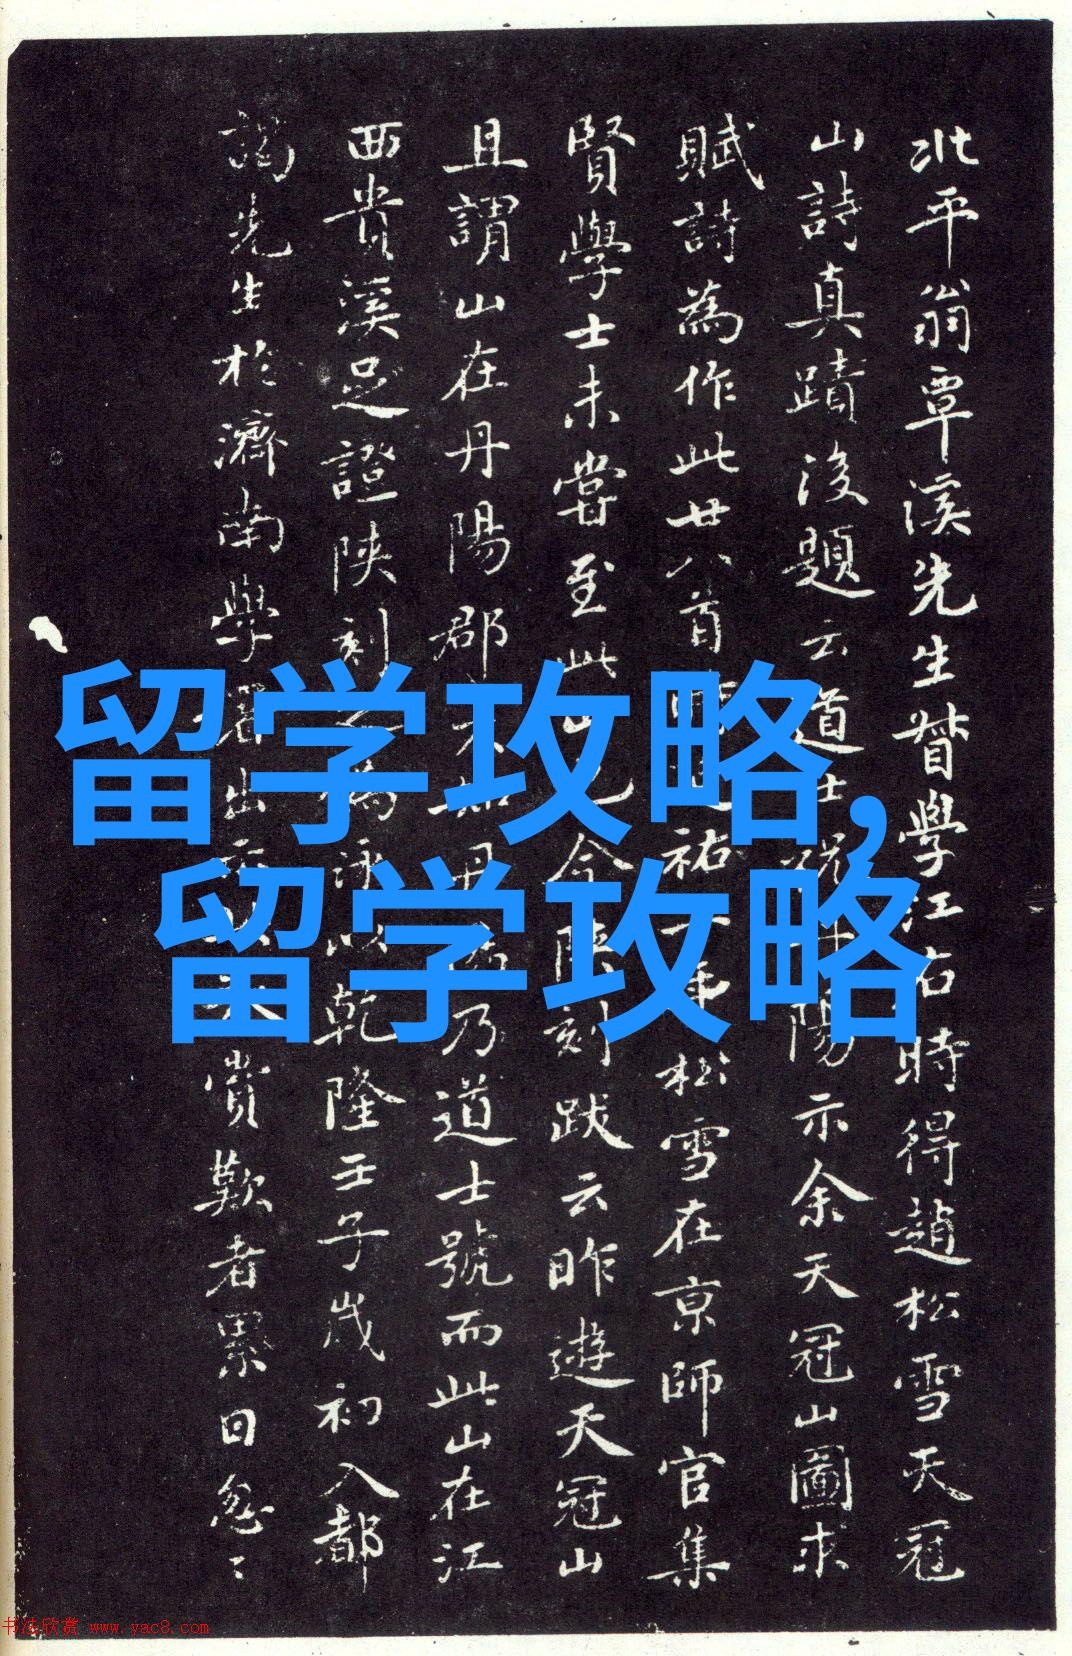 北平翁覃溪先生督學江右時得趙松雪天冠
山詩真蹟後題云道士 陽示余天冠山圖求
賦詩為作此廿八首 祐 松雪在京師官集
賢學士未嘗至此山 今陝刻跋云昨遊天冠山
且謂山在丹陽郡 丹 乃道士號而此山在江
西貴溪足證陝刻 為 以乾隆壬子歲初入都
謁先生於濟南學 出 賞歎者累日忽〻
留学攻略,
留学攻略
书法欣赏 www.yac8.com